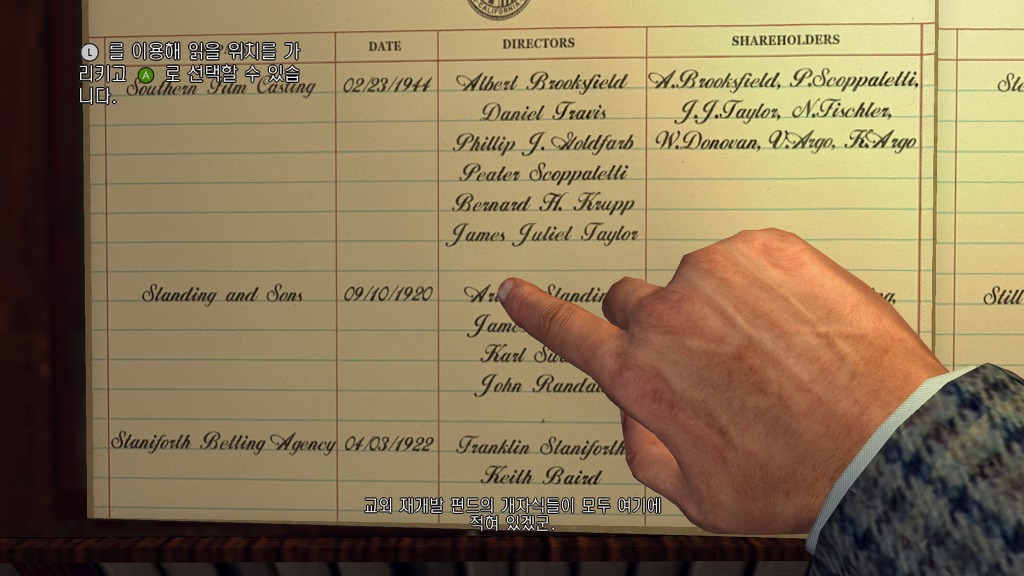 CALIFORNIA
DATE DIRECTORS SHAREHOLDERS
L 를 이용해 읽을 위치를 가
리키고 A 로 선택할 수 있습
니다.
Southern Film Casting 02/23/1944 Albert Brooksfield A.Brooksfield, P.Scoppaletti,
Daniel Travis J.J.Taylor, N.Fischler,
Phillip J. Goldfarb W.Donovan, V.Argo, K.Argo
Peater Scoppaletti
Bernard H. Krupp
James Juliet Taylor
Standing and Sons 09/10/1920
Karl
John
Staniforth Betting Agency 04/03/1922 Franklin Staniforth
Keith Baird
교외 재개발 펀드의 개자식들이 모두 여기에
적혀 있겠군.